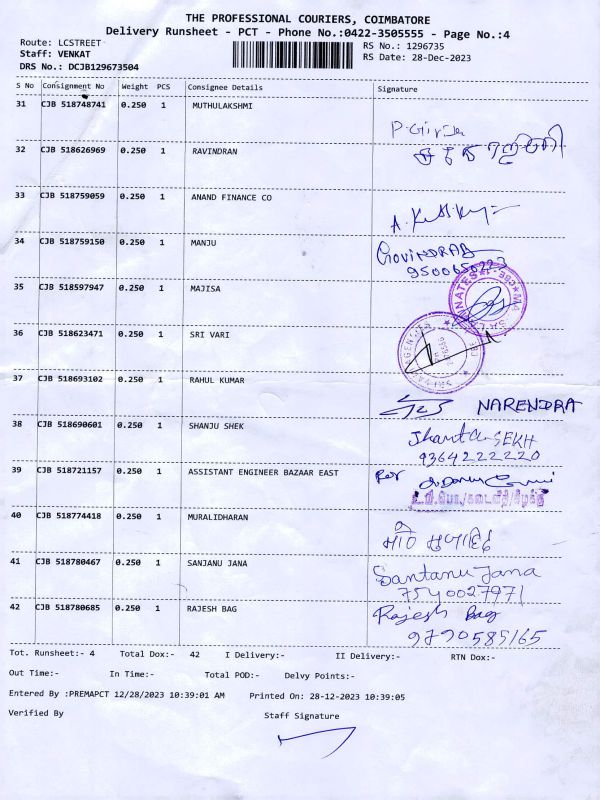 THE PROFESSIONAL COURIERS, COIMBATORE
Delivery Runsheet - PCT - Phone No.:0422-3505555 - Page No.:4
Route: LCSTREET
RS No.: 1296735
Staff: VENKAT
RS Date: 28-Dec-2023
DRS No.: DCJB129673504
S No Consignment No Weight PCS Consignee Details Signature
31 CJB 518748741 0.250 1 MUTHULAKSHMI
32 CJB 518626969 0.250 1 RAVINDRAN
33 CJB 518759059 0.250 1 ANAND FINANCE CO
34 CJB 518759150 0.250 1 MANJU
35 CJB 518597947 0.250 1 MAJISA
36 CJB 518623471 0.250 1 SRI VARI
37 CJB 518693102 0.250 1 RAHUL KUMAR
NARENDRA
38 CJB 518690601 0.250 1 SHANJU SHEK
SEKH
9364222220
39 CJB 518721157 0.250 1 ASSISTANT ENGINEER BAZAAR EAST
40 CJB 518774418 0.250 1 MURALIDHARAN
41 CJB 518780467 0.250 1 SANJANU JANA
Santanu Jana
7540027971
42 CJB 518780685 0.250 1 RAJESH BAG
Rajesh Bag
9790585165
Tot. Runsheet:- 4 Total Dox:- 42 I Delivery:- II Delivery:- RTN Dox:-
Out Time:- In Time:- Total POD:- Delvy Points:-
Entered By :PREMAPCT 12/28/2023 10:39:01 AM Printed On: 28-12-2023 10:39:05
Verified By Staff Signature